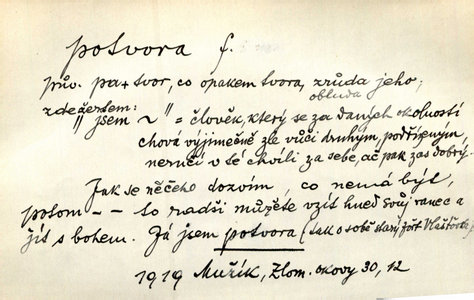 potvora f.
pův. pa + tvor, co opakem tvora, zrůda jeho;
obluda
zde žertem:
„jsem ~“ = člověk, který se za daných okolností
chová výjimečně zle vůči druhým, podřízeným,
neručí v té chvíli za sebe, ač pak zas dobrý.
Jak se něčeho dozvím, co nemá být,
potom – – to radši můžete vzít hned svůj ranec a
jít s bohem. Já jsem potvora (tak o sobě starý
1919 Mužík, Zlom. okovy 30, 12